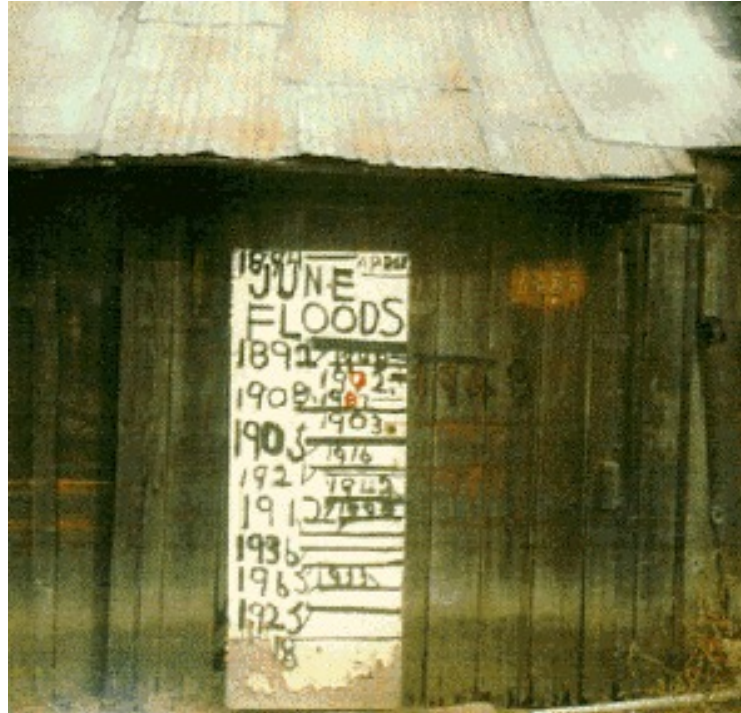 1894
JUNE
FLOODS
1892
1972
1908
1903
1905
1916
1921
1942
1912
1936
1965 1933
1925
18
1948